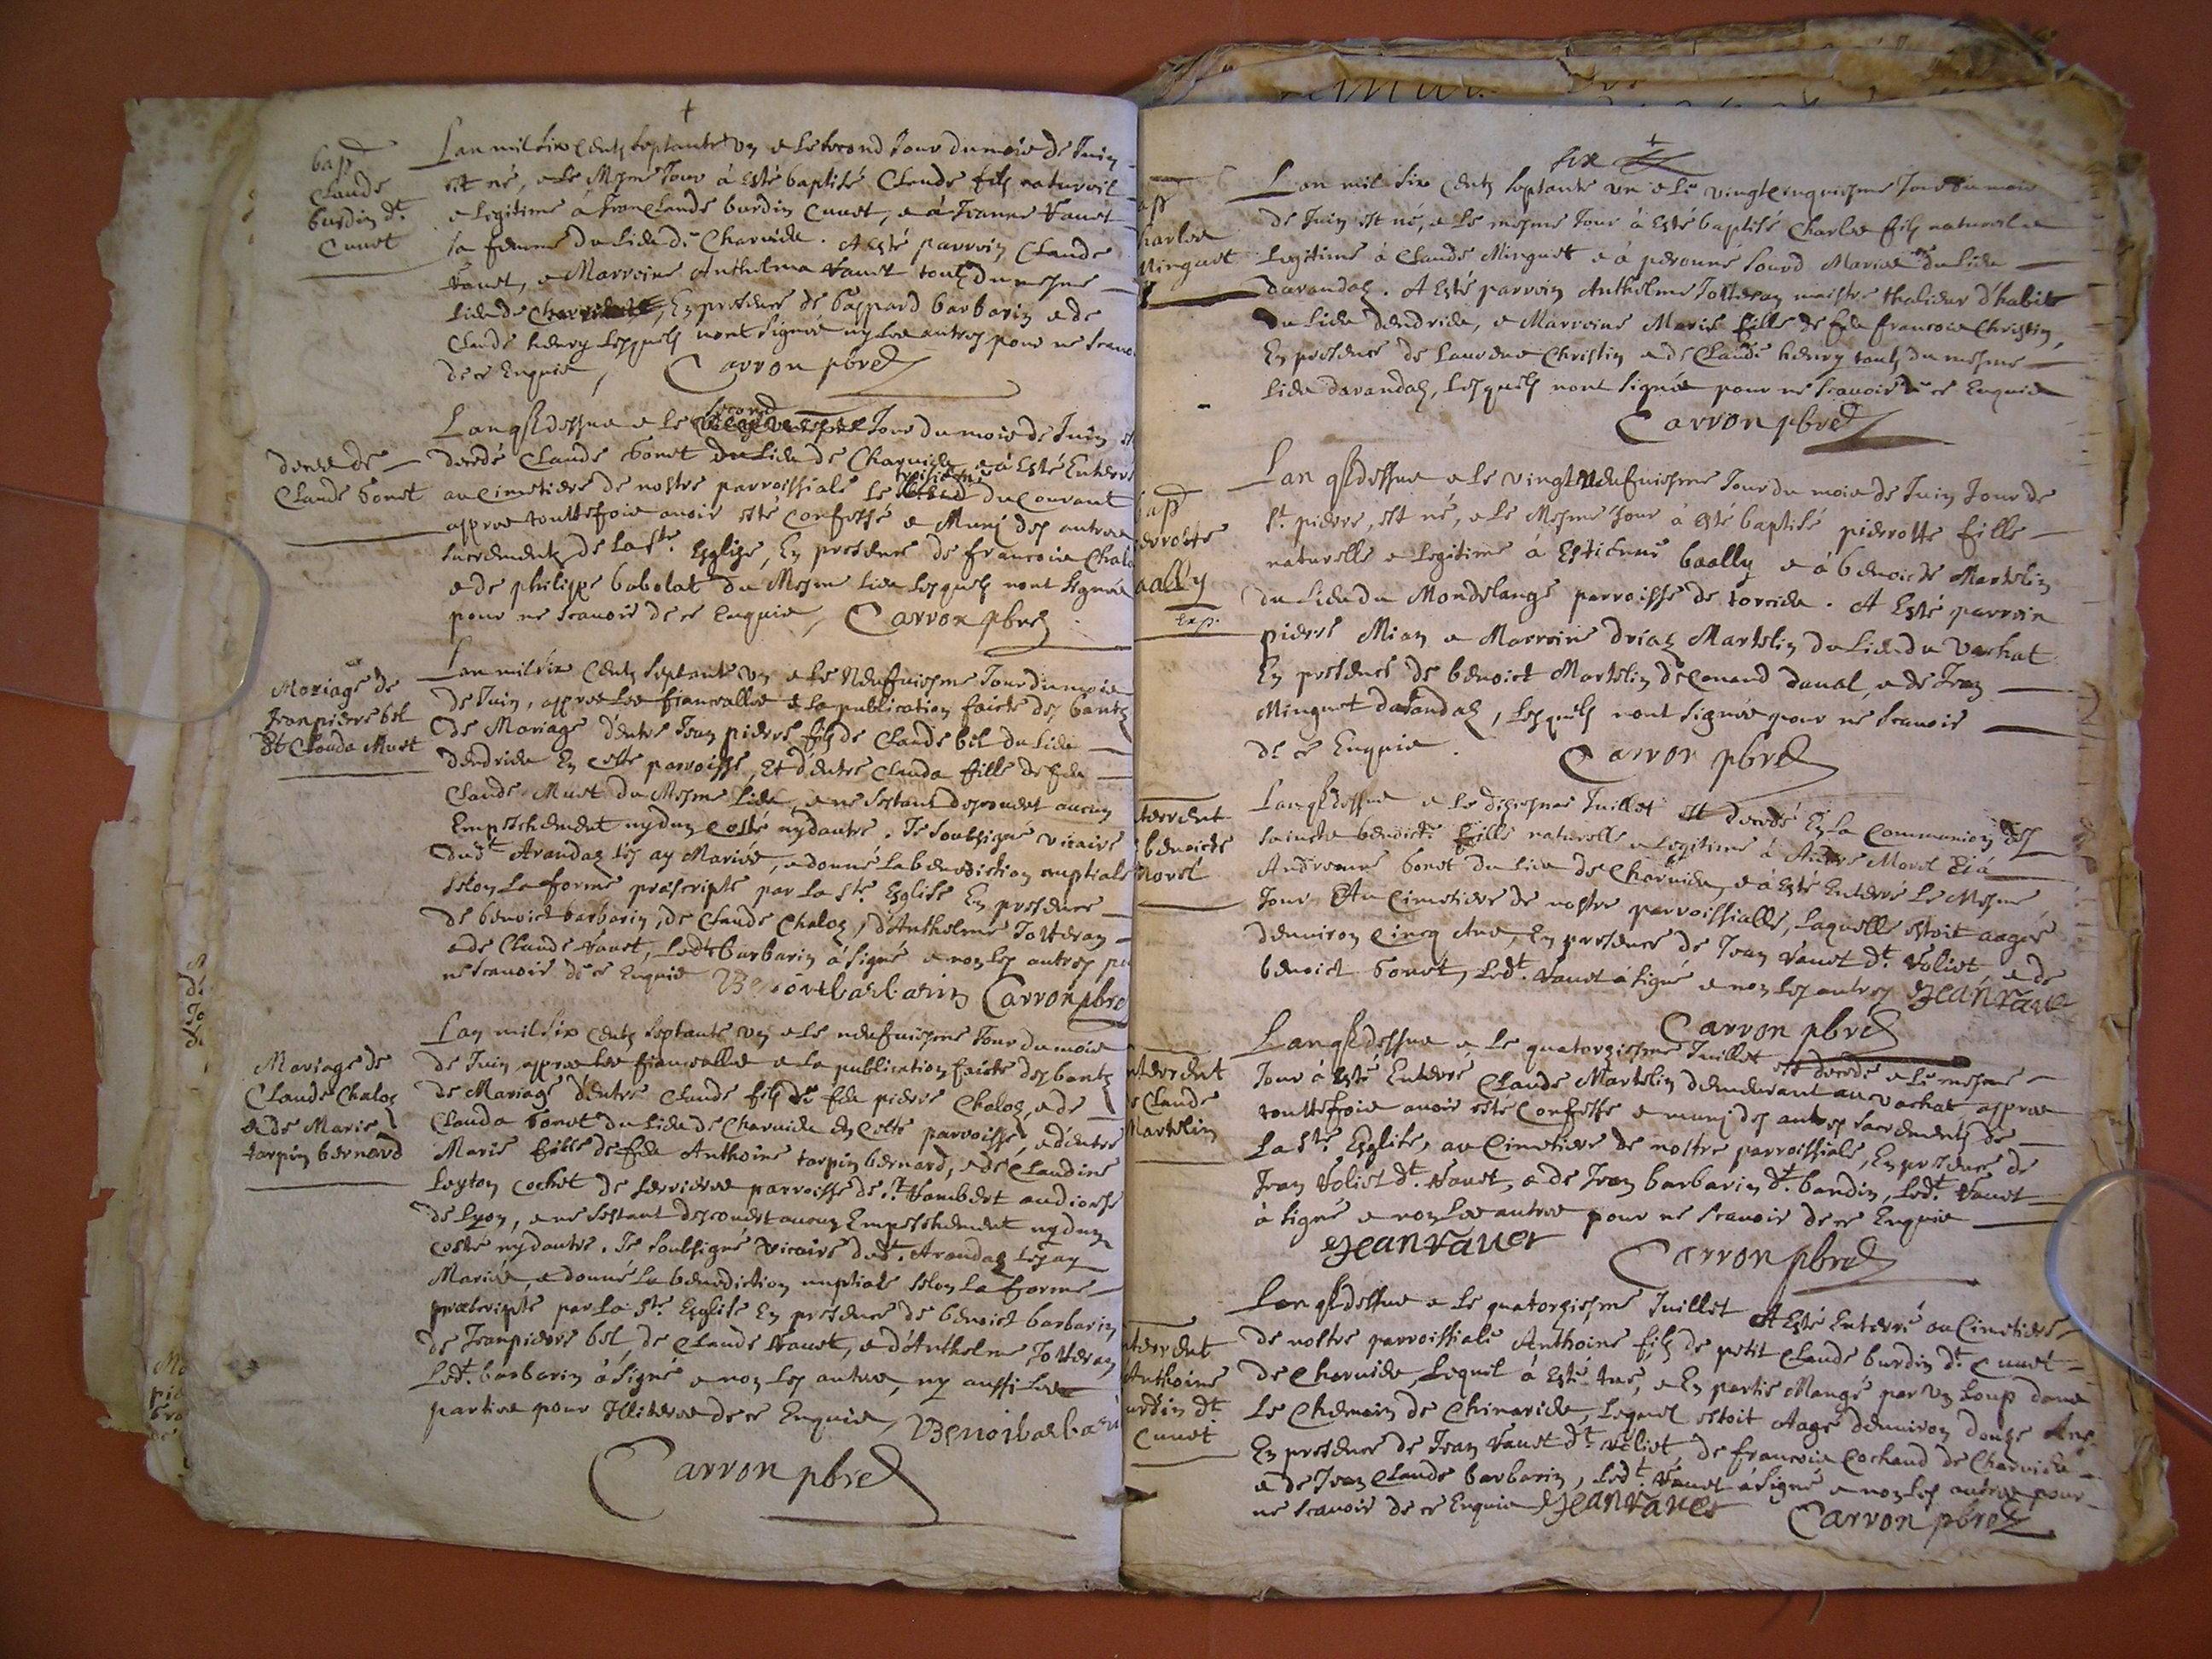 bap
Claude
burdin dt.
Cuuet
Lan mil six Centz septante un e le second Jour du mois de Juin
est né, e le Mesme Jour à Esté baptisé Claude filz naturel
e legitime à Jean Claude burdin Cuuet, e à Jeanne Vauet
sa femme du lieu de Charuieu. A esté parroin Claude
Vauet, e Marroine Anthelma Vauet toutz du mesme
lieu de Charuieu, En presence de Gaspard barbarin e de
Claude henry lesquels nont signés ny les autres pour ne scauoir
de ce Enquis, Carron pbre
Lan qst dessus e le second Jour du mois de Juin est
deces de
Claude bonet
decedé Claude bonet du lieu de Charuieu e à Esté Enterré
au Cimetiere de nostre parroissiale le troisiesme du Courant
appres touttefois auoir esté Confessé e Munj des autres
sacrementz de la ste. Esglise, En presence de francois Chaloz
e de philippe babolat du Mesme lieu lesquels nont signés
pour ne scauoir de ce Enquis, Carron pbre
Mariage de
Jean pierre bel
Et Clauda Muet
Lan mil six Centz septante un e le Neufuiesme Jour du mois
de Juin, appres les fiancailles e la publication faicte des bantz
de Mariage dentre Jean pierre filz de Claude bel du lieu
dendrieu En ceste parroisse, Et dentre Clauda fille de feu
Claude Muet du Mesme lieu, e ne sestant descouuert aucun
Empeschement ny dun costé ny dautre. Je soubsigné vicaire
dudt. Arandaz les ay Mariés, e donné la benediction nuptiale
selon la forme prescripte par la ste. Esglise En presence
de benoict barbarin, de Claude Chaloz, d'Anthelme Jotteran
e de Claude Vauet, ledt. barbarin à signé e non les autres pour
ne scauoir de ce Enquis Benoit barbarin Carron pbre
Mariage de
Claude Chaloz
e de Marie
tarpin bernard
Lan mil six Centz septante un e le neufuiesme Jour du mois
de Juin appres les fiancailles e la publication faicte des bantz
de Mariage dentre Claude filz de feu pierre Chaloz, e de
Clauda bonet du lieu de Charuieu En ceste parroisse, e dentre
Marie fille de feu Anthoine tarpin bernard, e de Claudine
Leyton Cochet de serrieres parroisse de st. Rambert au diocese
de Lyon, e ne sestant descouuert aucun Empeschement ny dun
costé ny dautre. Je soubsigné vicaire dudt. Arandaz les ay
Mariés, e donné la benediction nuptiale selon la forme
prescripte par la ste. Esglise En presence de benoict barbarin
de Jean pierre bel, de Claude Vauet, e d'Anthelme Jotteran,
ledt. barbarin à signé e non les autres, ny aussi les
parties pour Illiteres de ce Enquis, Benoit barbarin
Carron pbre
ap
harles
Minguet
Lan mil six Centz septante un e le vingtcinquiesme Jour du mois
de Juin est né, e le mesme Jour à Esté baptisé Charles filz naturel e
legitime à Claude Minguet e à peronne sourd Mariés du lieu
darandaz. A Esté parroin Anthelme Jotteran maistre thalieur d'habits
du lieu dendrieu, e Marroine Marie fille de feu francois Christin,
En presence de Laurens Christin e de Claude henry toutz du mesme
lieu darandaz, lesquels nont signés pour ne scauoir de ce Enquis
Carron pbre
ap
ierrotte
aally
Exp.
Lan qst dessus e le vingt Neufuiesme Jour du mois de Juin Jour de
st. pierre, est né, e le Mesme Jour à esté baptisé pierrotte fille
naturelle e legitime à Estienne baally e à benoicte Martelin
du lieu du Mondelange parroisse de torcieu. A Esté parroin
pierre Mian e Marroine driaz Martelin du lieu du Vachat
En presence de benoict Martelin de Conand daual, e de Jean
Minguet darandaz, lesquels nont signés pour ne scauoir
de ce Enquis. Carron pbre
terrent
benoicte
Morel
Lan qst dessus e le dixiesme Juillet est decedé En la Communion des
saincts benoicte fille naturelle e legitime à Andre Morel Et à
Andreanne bonet du lieu de Charuieu, e à Esté Enterré le Mesme
Jour Au Cimetiere de nostre parroissialle, laquelle estoit aagée
denuiron Cincq Ans, En presence de Jean Vauet dt. Voliet e de
benoict bonet, ledt. Vauet à signé e non les autres Jean Vauet
Carron pbre
nterrent
e Claude
Martelin
Lan qst dessus e le quatorziesme Juillet est decedé e le mesme
Jour à Esté Enterré Claude Martelin demeurant au vachat appres
touttefois auoir esté Confesse e munj des autres sacrementz de
la ste. Esglise, au Cimetiere de nostre parroissiale, En presence de
Jean Voliet dt. Vauet, e de Jean barbarin dt. bandin, ledt. Vauet
à signé e non les autres pour ne scauoir de ce Enquis
Jean Vauet Carron pbre
nterrent
Anthoine
urdin dt.
Cuuet
Lan qst dessus e le quatorziesme Juillet A Esté Enterré au Cimetiere
de nostre parroissiale Anthoine filz de petit Claude burdin dt. Cuuet
de Charuieu, lequel à esté tué, e En partie Mangé par un loup dans
le Chemin de Chinarieu, lequel estoit Aagé denuiron douze Ans
En presence de Jean Vauet dt. Voliet, de francois Cochand de Charuieu
e de Jean Claude barbarin, ledt. Vauet à signé e non les autres pour
ne scauoir de ce Enquis Jean Vauet Carron pbre